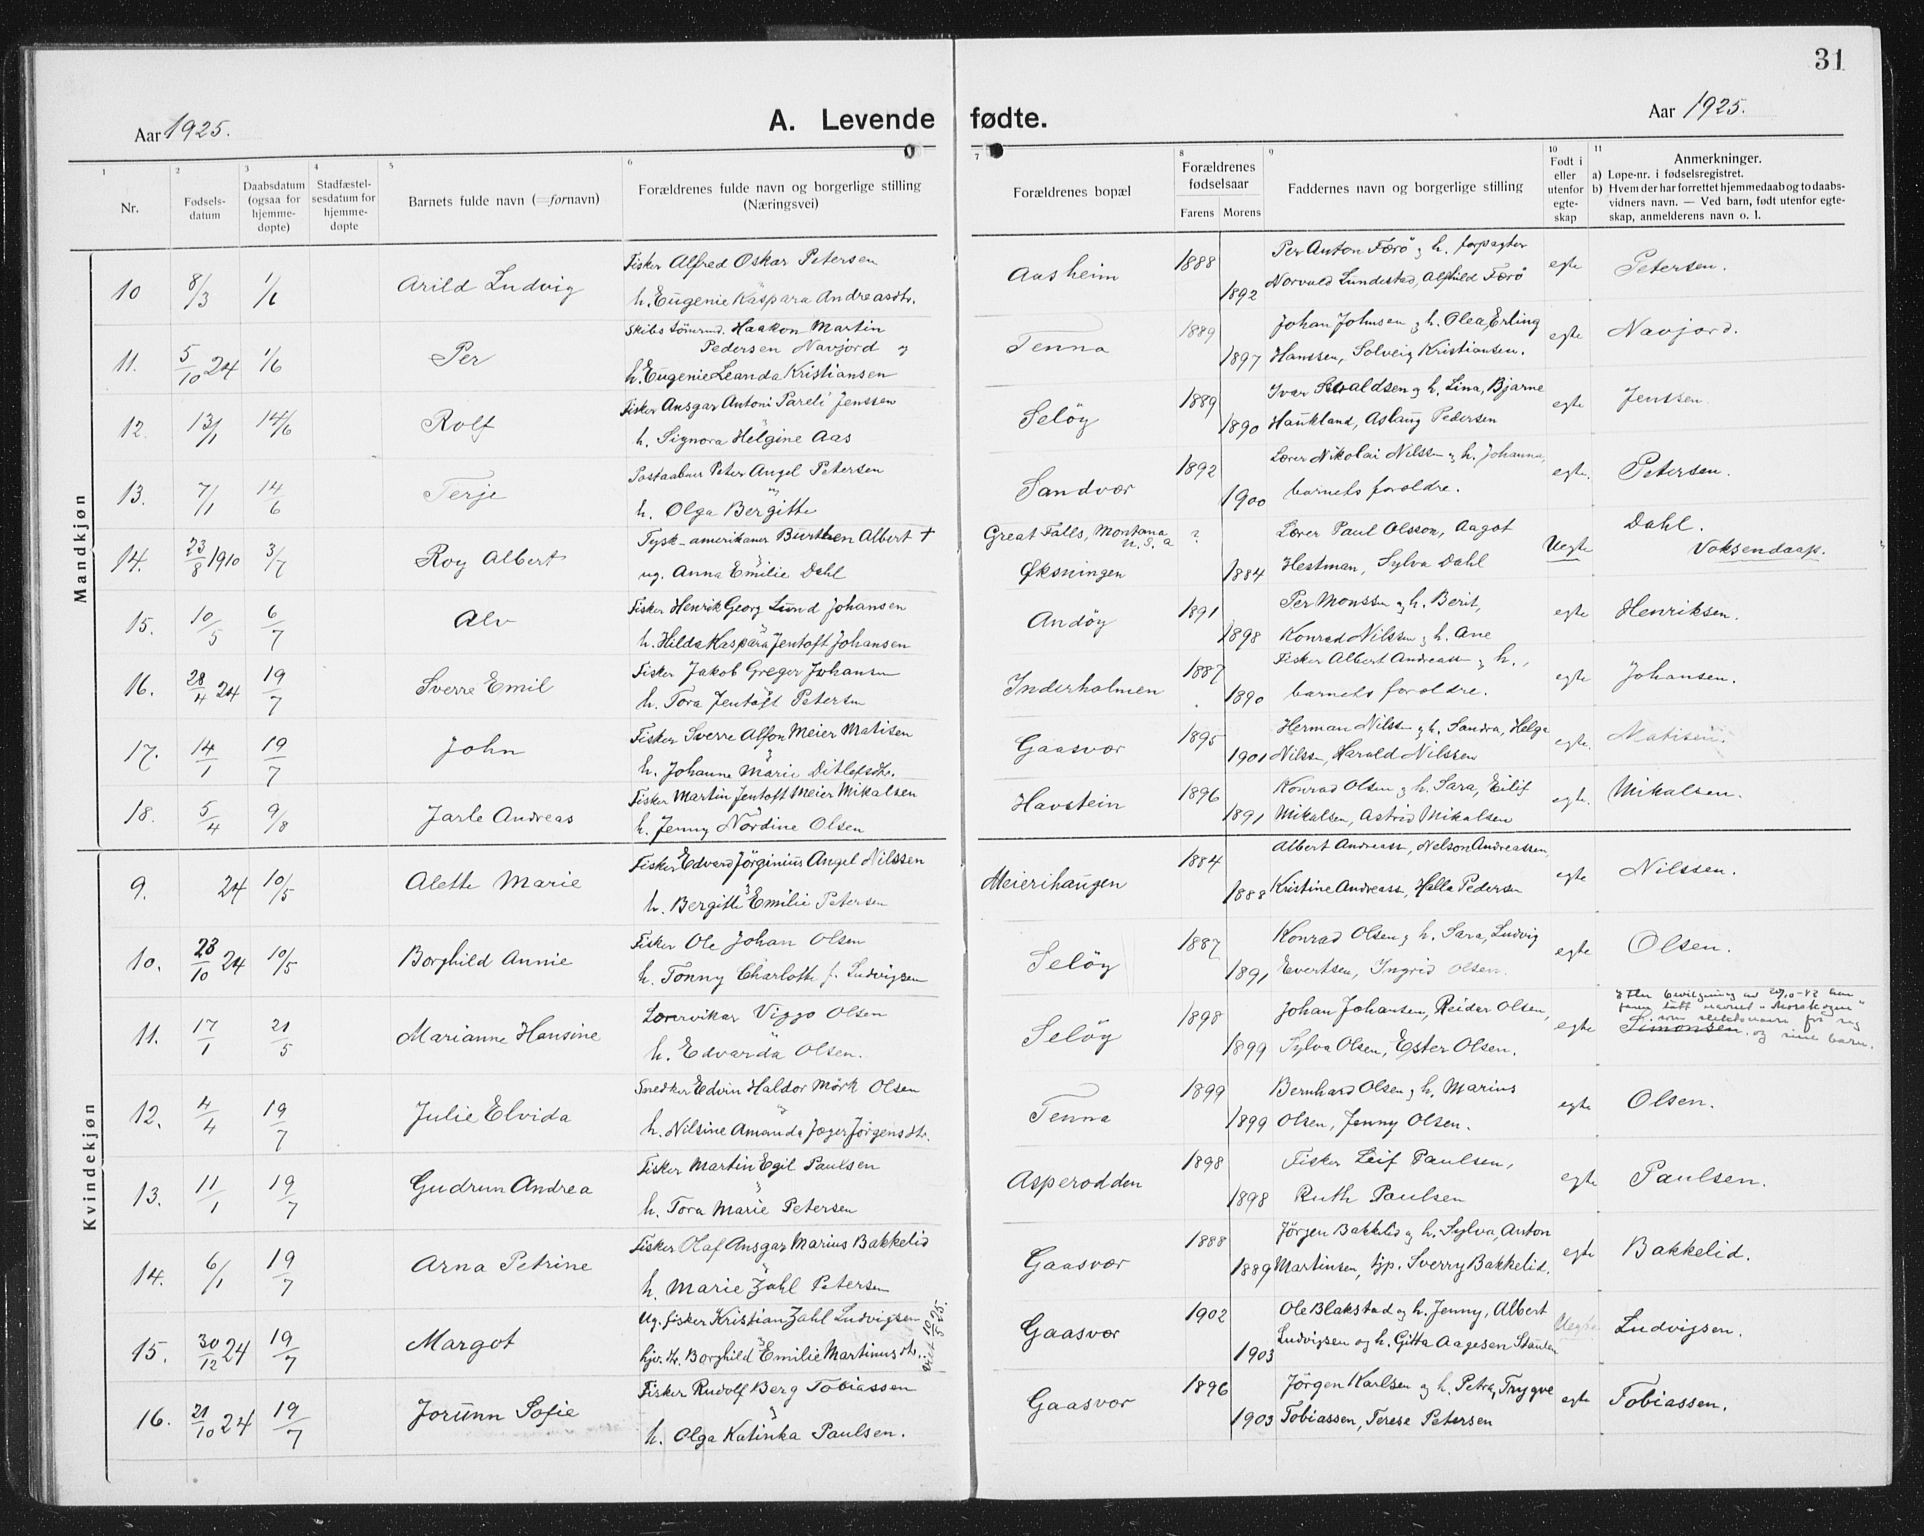 31
Aar 1925.
A. Levende fødte.
Aar 1925.
1
2
3
4
5
6
7
8
9
10
11
Nr.
Fødsels-
datum
Daabsdatum
(ogsaa for
hjemme-
døpte)
Stadfæstel-
sesdatum for
hjemme-
døpte
Barnets fulde navn (=fornavn)
Forældrenes fulde navn og borgerlige stilling
(Næringsvei)
Forældrenes bopæl
Forældrenes
fødselsaar
Farens
Morens
Faddernes navn og borgerlige stilling
Født i
eller
utenfor
egte-
skap
Anmerkninger.
a) Løpe-nr. i fødselsregistret.
b) Hvem der har forrettet hjemmedaab og to daabs-
vidners navn. — Ved barn, født utenfor egte-
skap, anmelderens navn o. l.
Mandkjøn
10 8/3 1/6 Arild Ludvig
Fisker Alfred Oskar Petersen
h. Eugenie Kaspara Andreasdtr.
Aasheim 1888 1892
Per Anton Færö og h. forpagter
Norvald Lundestad, Alfhild Færö
egte Petersen.
11. 5/10 24 1/6 Per
Skibstömrmd. Haakon Martin
Pedersen Navjord og
h. Eugenie Leanda Kristiansen
Tenna 1889 1897
Johan Johnsen og h. Olea, Erling
Hanssen, Solveig Kristiansen.
egte Navjord.
12. 13/1 14/6 Rolf
Fisker Ansgar Antoni Pareli Jenssen
h. Signora Helgine Aas
Seløy 1889 1890
Ivar og h. Lina, Bjarne
Haukland, Aslaug Pedersen
egte Jenssen.
13. 7/1 14/6 Terje
Postaabner Peter Angel Petersen
og
h. Olga Bergitte
Sandvær 1892 1900
Lærer Nikolai Nilssen og h. Johanna,
barnets foreldre.
egte. Petersen.
14. 23/8 1910 3/7 Roy Albert
Tysk-amerikaner Burthen Albert +
ug. Anna Emilie Dahl
Great Falls, Montana
U. S. A
Øksningen
? 1884
Lærer Paul Olsson, Aagot
Hestman, Sylva Dahl
Uegte Dahl.
Voksendaap.
15. 10/5 6/7 Alv
Fisker Henrik Georg Lund Johansen
h. Hilda Kaspara Jentoft Johansen
Andöy 1891 1898
Per Monssen og h. Berit,
Konrad Nilssen og h. Ane
egte Henriksen.
16. 28/4 24 19/7 Sverre Emil
Fisker Jakob Greger Johansen
h. Tora Jentoft Petersen
Inderholmen 1887 1890
Fisker Albert Andreass og h.,
barnets foreldre.
egte Johansen.
17. 14/1 19/7 John
Fisker Sverre Alfon Meier Matisen
h. Johanne Marie Ditlefsdtr.
Gaasvær 1895 1901
Herman Nilssen og h. Sandra, Helga
Nilssen, Harald Nilssen
egte. Matisen.
18. 5/4 9/8 Jarle Andreas
Fisker Martin Jentoft Meier Mikalsen
h. Jenny Nordine Olsen
Havstein 1896 1891
Konrad Olsen og h. Sara, Eilif
Mikalsen, Astrid Mikalsen
egte. Mikalsen.
Kvindekjøn
9. 24 10/5 Alette Marie
Fisker Edvard Jörginius Angel Nilssen
h. Bergitte Emilie Petersen
Meierihaugen 1884 1888
Albert Andreass, Nelson Andreassen,
Kristine Andreass, Halla Pedersen
egte Nilssen.
10. 28/10 24 10/5 Borghild Annie
Fisker Ole Johan Olsen
h. Tonny Charlotte f. Ludvigsen
Seløy 1887 1891
Konrad Olsen og h. Sara, Ludvig
Evertsen, Ingrid Olsen.
egte Olsen.
11. 17/1 21/5 Marianne Hansine
Lærervikar Viggo Olsen
h. Edvarda Olsen.
Seløy 1898 1899
Johan Johansen, Reidar Olsen,
Sylva Olsen, Ester Olsen.
egte Simonsen.
Efter bevilgning av
navnet "Morskogen"
som slektsnavn for seg
og sine barn.
12. 4/4 19/7 Julie Elvida
Snedker Edvin Haldor Mörk Olsen
h. Nilsine Amanda Jæger Jörgensdtr.
Tenna 1899 1899
Bernhard Olsen og h. Marius
Olsen, Jenny Olsen.
egte Olsen.
13. 11/1 19/7 Gudrun Andrea
Fisker Martin Egil Paulsen
h. Tora Marie Petersen
Asperodden 1898 1898
Fisker Leif Paulsen,
Ruth Paulsen
egte Paulsen.
14. 6/1 19/7 Arna Petrine
Fisker Olaf Ansgar Marius Bakkelid
h. Marie Zahl Petersen
Gaasvær 1888 1889
Jörgen Bakkelid og h. Sylva, Anton
Martinsen, tjp. Sverry Bakkelid.
egte Bakkelid.
15. 30/12 24 19/7 Margot
Ug. fisker Kristian Zahl Ludvigsen
hjv. dtr. Borghild Emilie Martinusdtr.
viet 10/5 25.
Gaasvær 1902 1903
Ole Blakstad og h. Jenny, Albert
Ludvigsen og h. Gitta Aagesen
Uegte Ludvigsen.
16. 21/10 24 19/7 Jorunn Sofie
Fisker Rudolf Berg Tobiassen
h. Olga Katinka Paulsen.
Gaasvær 1896 1903
Jörgen Karlsen og h. Petra, Trygve
Tobiassen, Terese Petersen
egte Tobiassen.